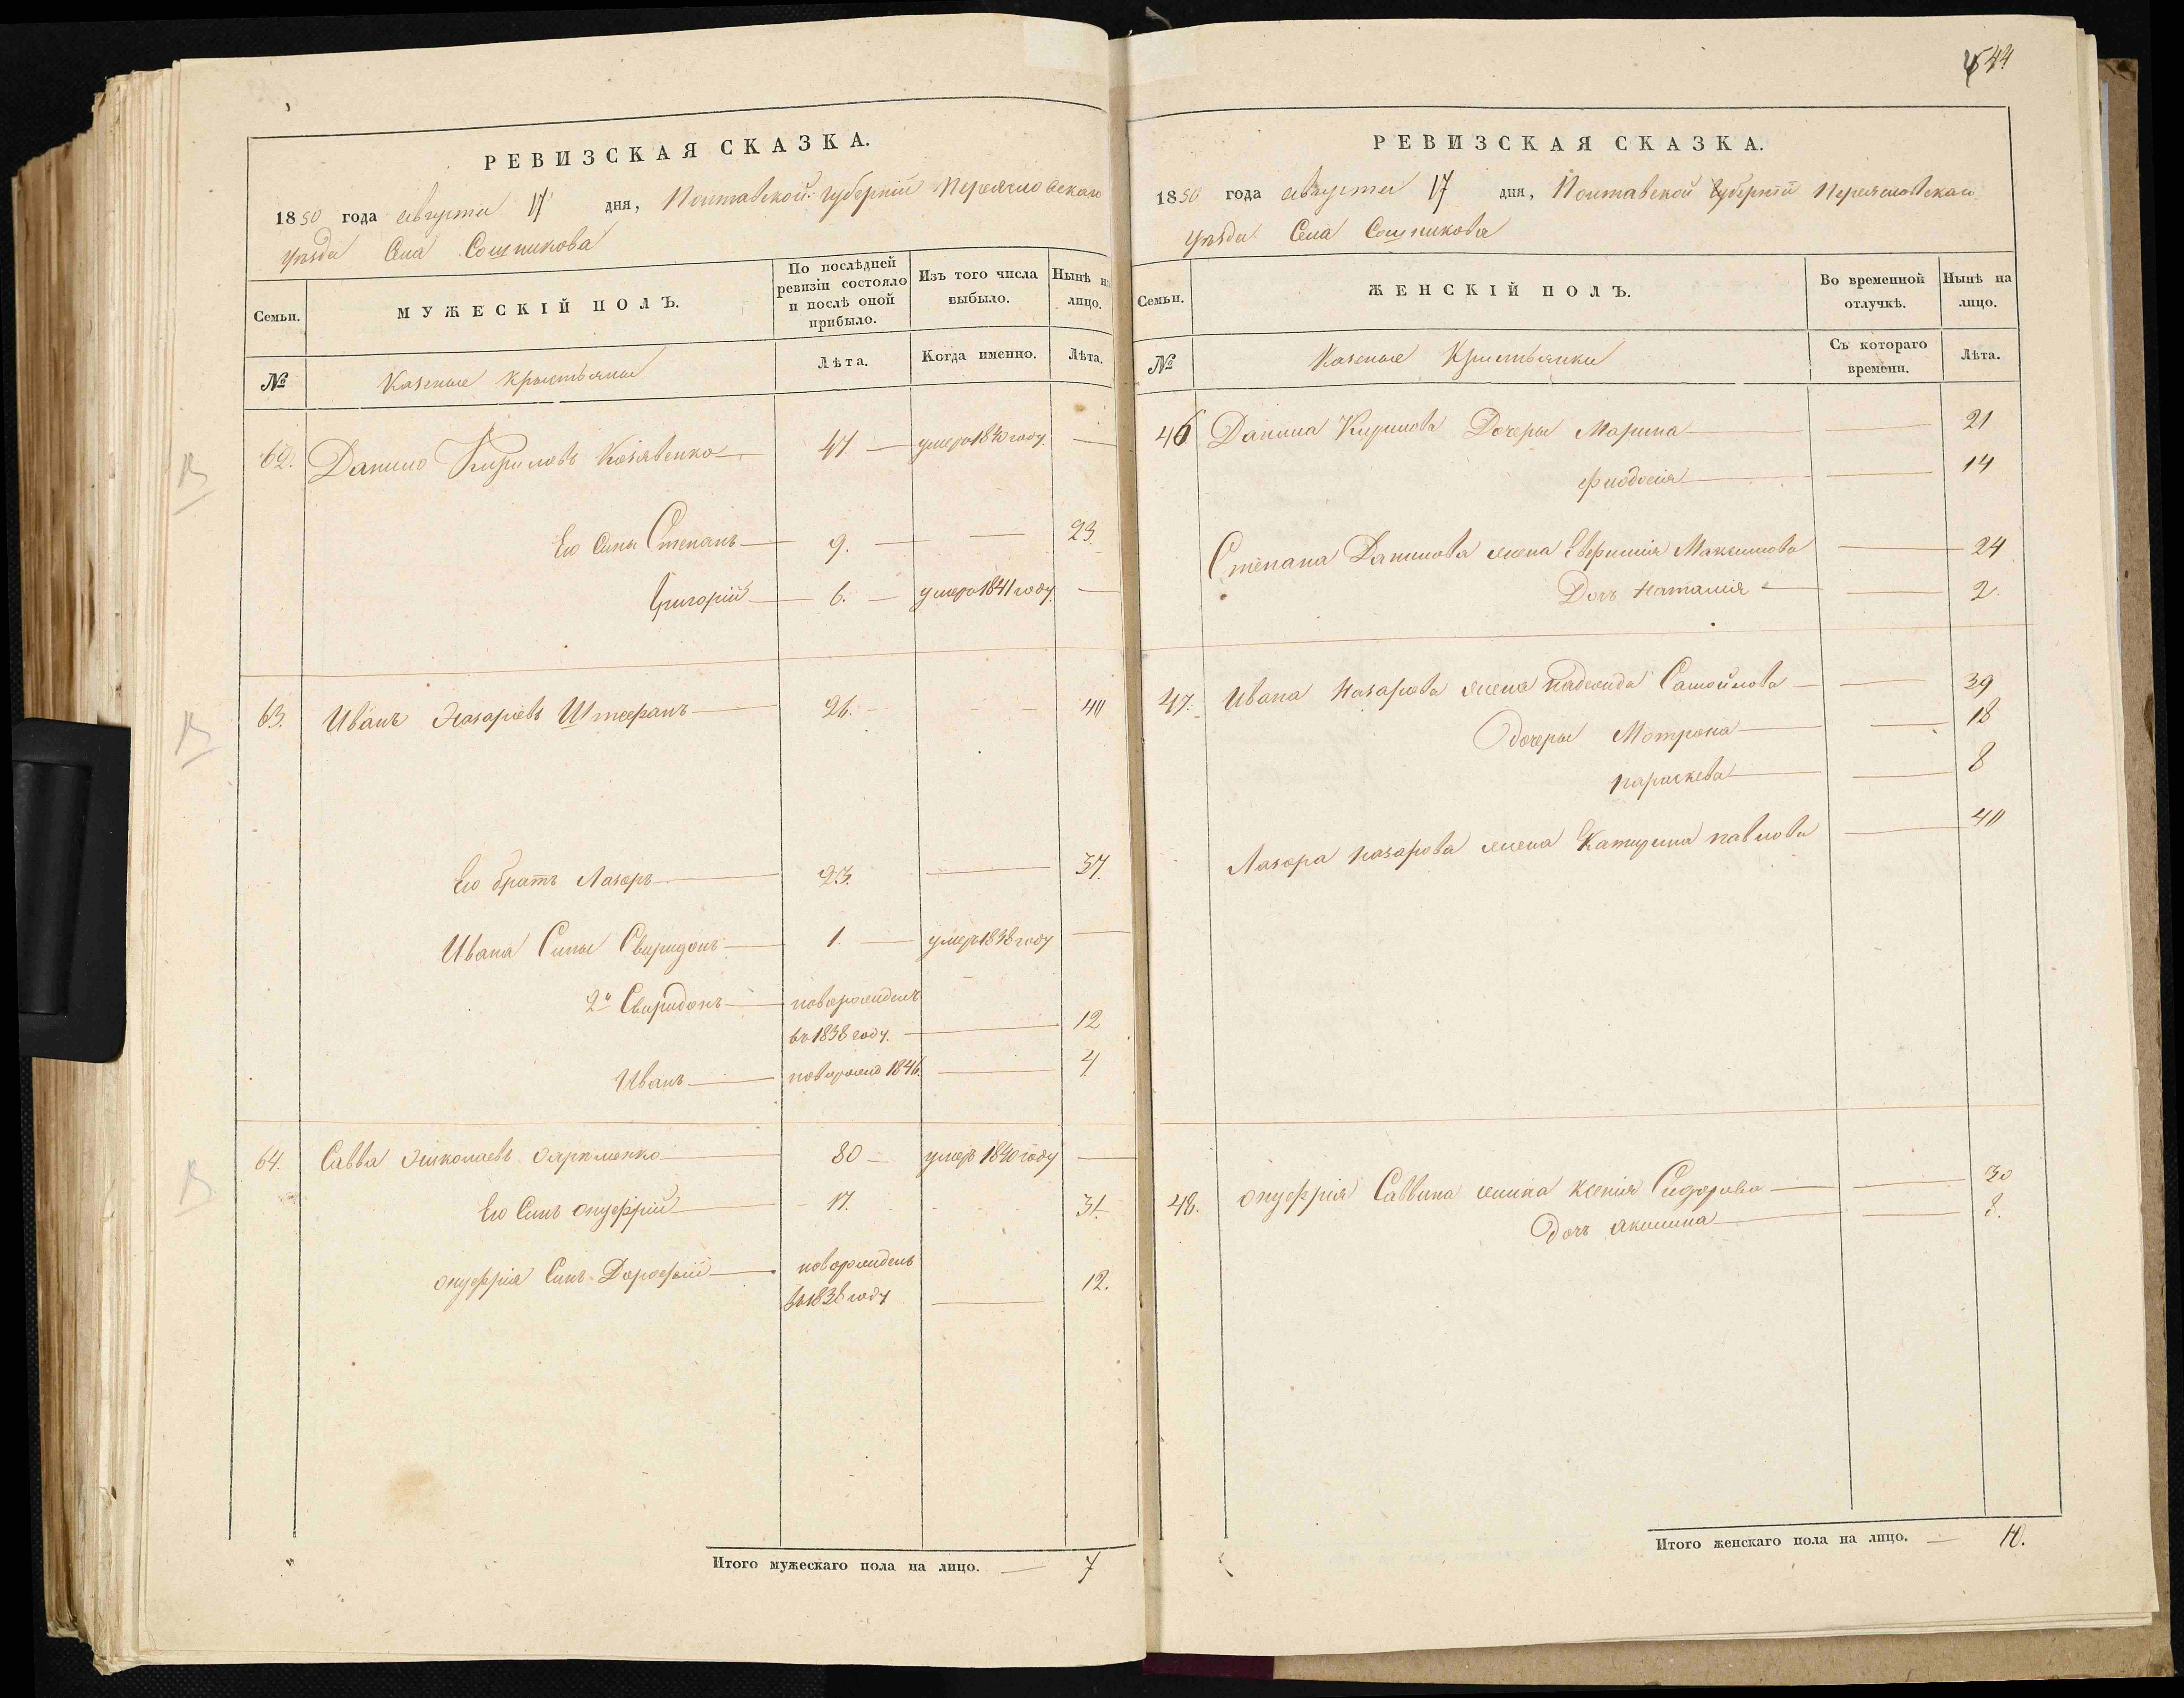 РЕВИЗСКАЯ СКАЗКА.
1850 года августа 17 дня, Полтавской губерніи Переяславскаго
уѣзда Села Сошникова
Семьи. МУЖЕСКІЙ ПОЛЪ. По послѣдней ревизіи состояло и послѣ оной прибыло. Изъ того числа выбыло. Нынѣ на лицо.
№ Казеные крыстьяны Лѣта. Когда именно. Лѣта.
62. Данило Кириловъ Козявенко 47 умеръ 1840 году
Его Сины Степанъ 9. 23
Григорій 6. умеръ 1841 году
63. Иванъ Назаріевъ 26. 40
Его братъ Лазоръ 23. 37.
Ивана Сины Свиридонъ 1. умеръ 1838 году
2й Свиридонъ новорожденъ
въ 1838 году. 12
Иванъ новорожд 1846. 4
64. Савва Николаевъ 80 умеръ 1840 году
Его Синъ онуфрій 17. 31.
онуфрія Синъ Дорофій новорожденъ
въ 1838 году 12.
Итого мужескаго пола на лицо. 7
544
РЕВИЗСКАЯ СКАЗКА.
1850 года августа 17 дня, Полтавской губерніи Переяславскаго
уѣзда Села Сошникова
Семьи. ЖЕНСКІЙ ПОЛЪ. Во временной отлучкѣ. Нынѣ на лицо.
№ Казеные Крыстьянки Съ котораго времени. Лѣта.
46 Данила Кирилова Дочеры Марина 21
Фиодосія 14
Степана Данилова жена Евфимія Максимова 24
Дочъ Наталия 2.
47. Ивана Назарова жена надежда Самойлова 39
дочеры Мотрона 18
параскева 8
Лазора назарова жена Катерина павлова 40
48. онуфрія Саввина жинка ксенія Сидорова 30
дочъ акилина 8.
Итого женскаго пола на лицо. 10.